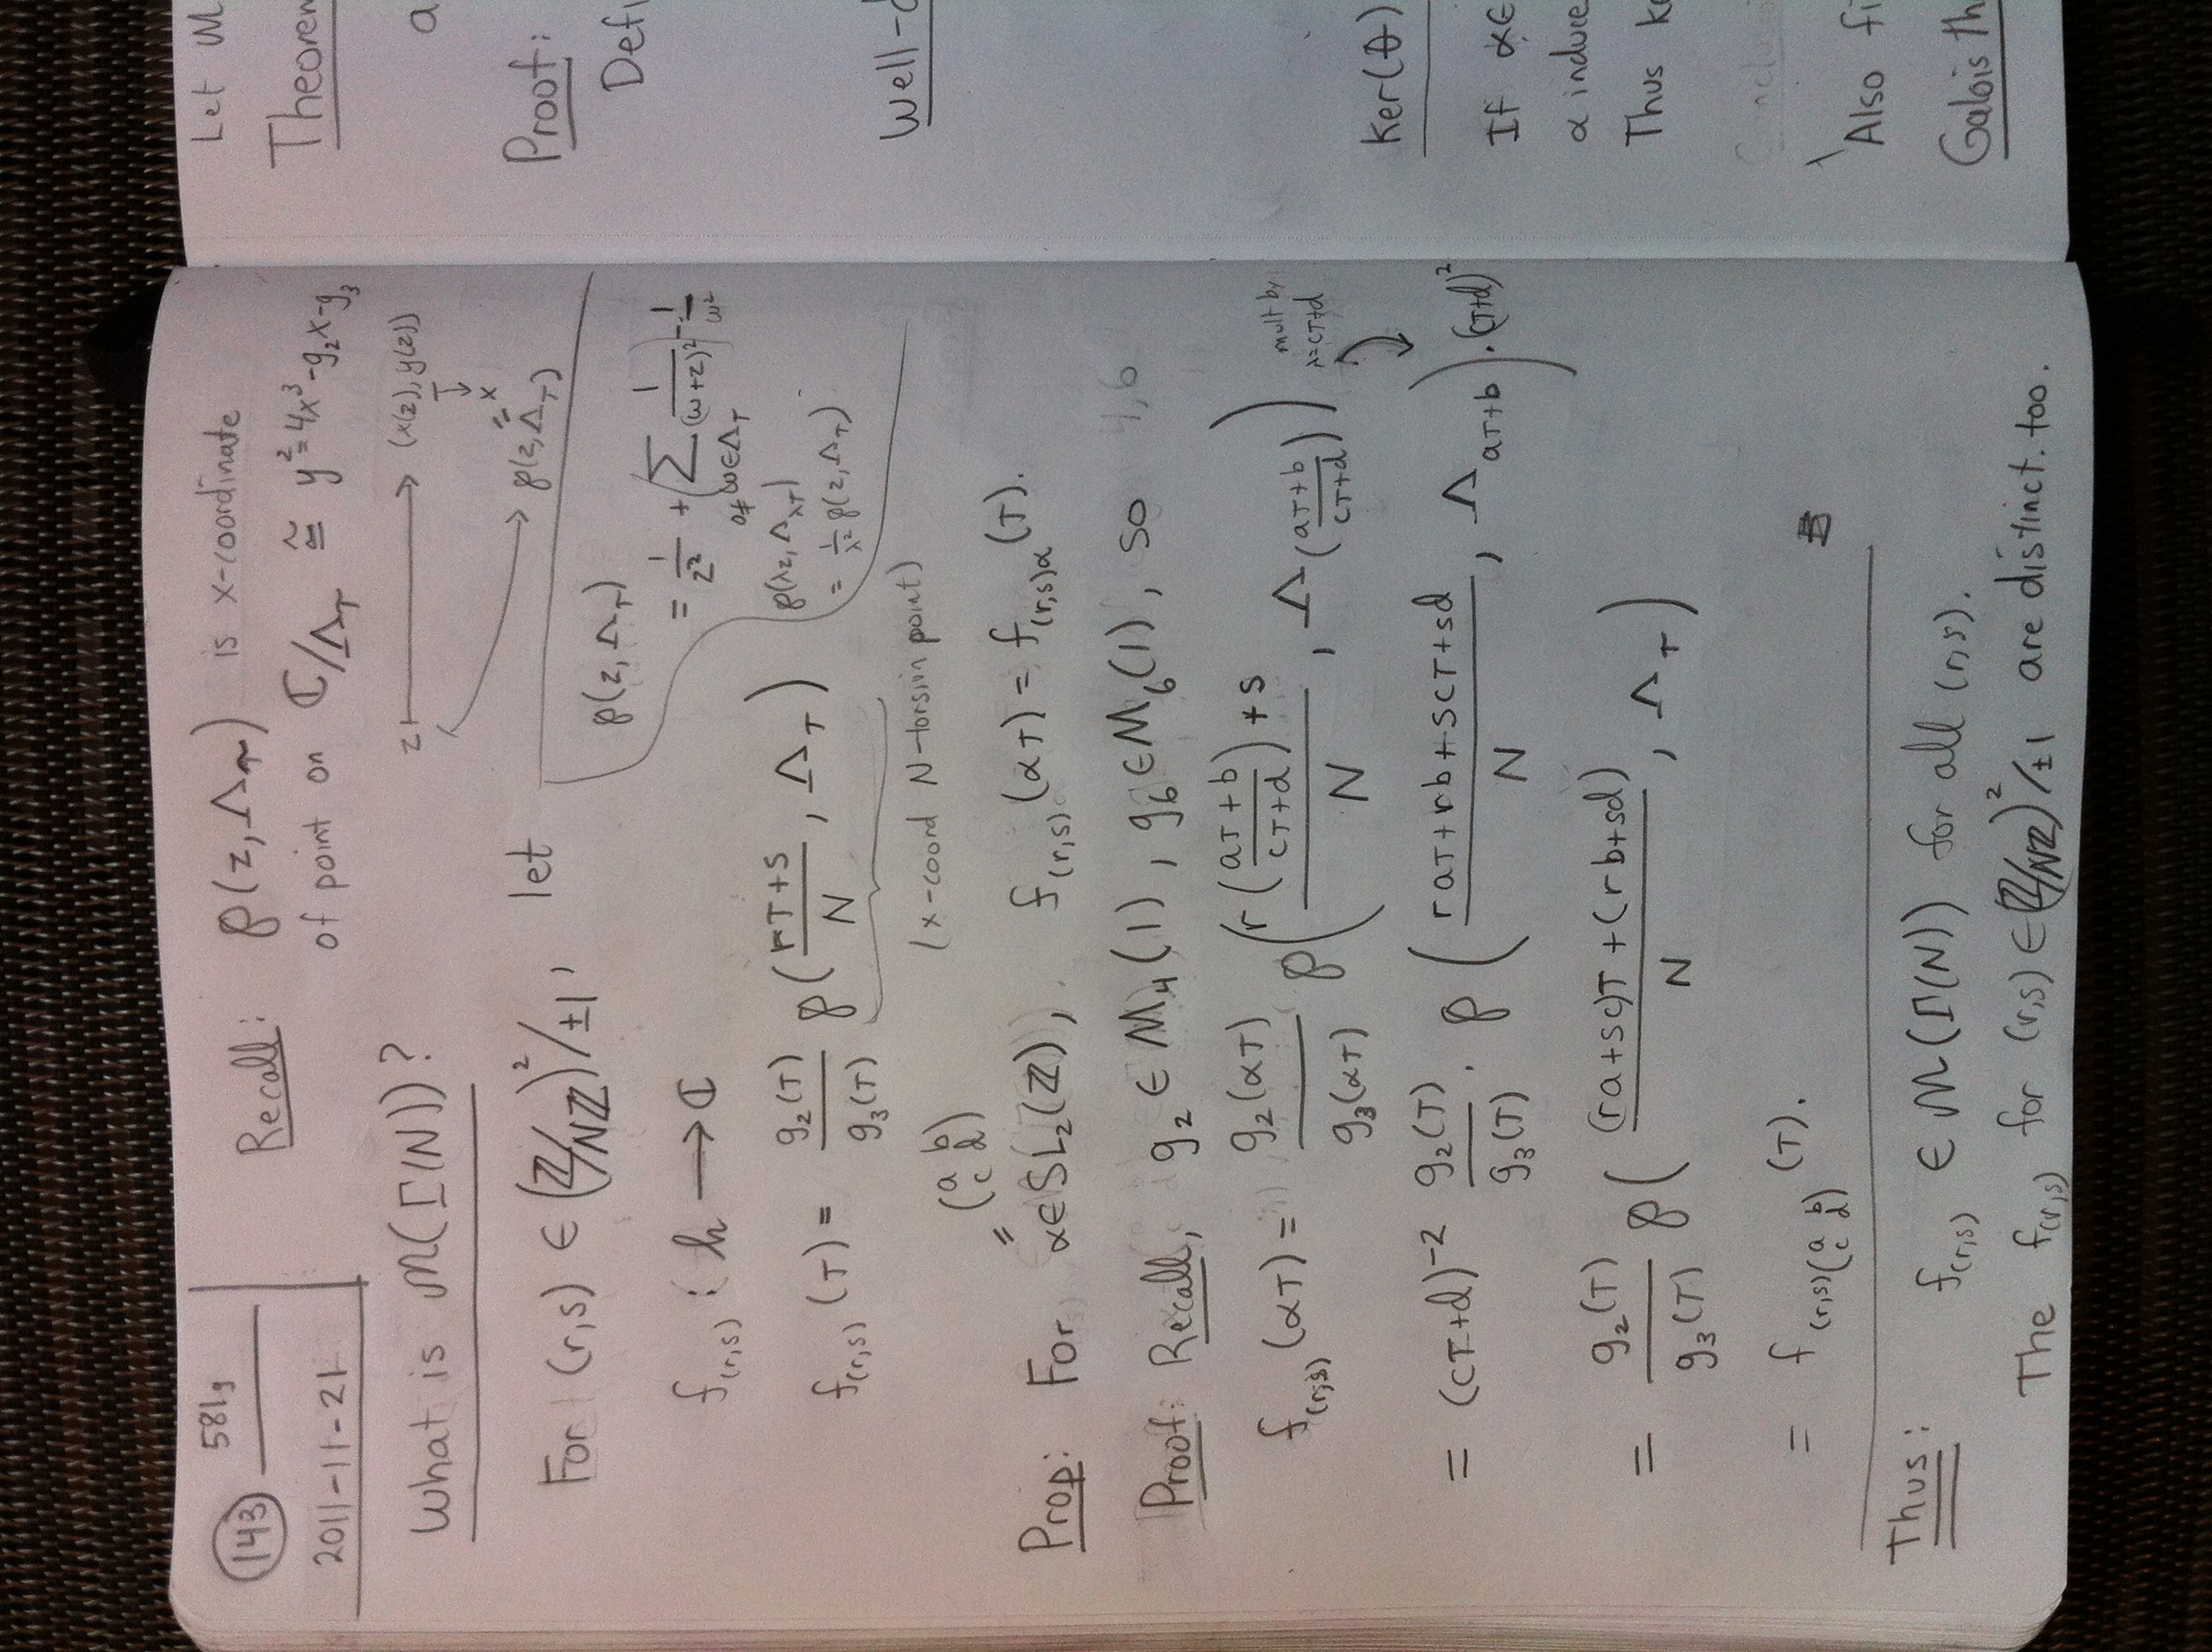 143 581g
2011-11-21
Recall: ℘(z, Λ_τ) is x-coordinate
of point on ℂ/Λ_τ ≅ y² = 4x³ - g₂x - g₃
z ⟼ (x(z), y(z))
↓
x
"
℘(z, Λ_τ)
What is 𝓜(Γ(N))?
For (r,s) ∈ (ℤ/Nℤ)²/±1, let
℘(z, Λ_τ)
= 1/z² + (∑_{0≠ω∈Λ_τ} 1/(ω+z)² - 1/ω²)
℘(λz, Λ_{λτ})
= 1/λ² ℘(z, Λ_τ)
f_(r,s) : h ⟶ ℂ
f_(r,s)(τ) = g₂(τ)/g₃(τ) ℘((rτ+s)/N, Λ_τ)
(x-coord N-torsion point)
(a b
c d)
"
Prop: For α∈SL₂(ℤ), f_(r,s)(ατ) = f_(r,s)α(τ).
Proof: Recall, g₂ ∈ M₄(1), g₆ ∈ M₆(1), so 4,6
f_(r,s)(ατ) = g₂(ατ)/g₃(ατ) ℘((r((aτ+b)/(cτ+d))+s)/N, Λ_((aτ+b)/(cτ+d)))
mult by
λ=cτ+d
= (cτ+d)⁻² g₂(τ)/g₃(τ) · ℘((raτ+rb+scτ+sd)/N, Λ_{aτ+b}) · (cτ+d)²
= g₂(τ)/g₃(τ) ℘(((ra+sc)τ+(rb+sd))/N, Λ_τ)
= f_(r,s)(a b c d)(τ).
Thus: f_(r,s) ∈ 𝓜(Γ(N)) for all (r,s).
The f_(r,s) for (r,s)∈(ℤ/Nℤ)²/±1 are distinct too.
Let M
Theorem
a
Proof:
Defi
Well-d
Ker(θ)
If α∈
α induce
Thus ke
Also fi
Galois th